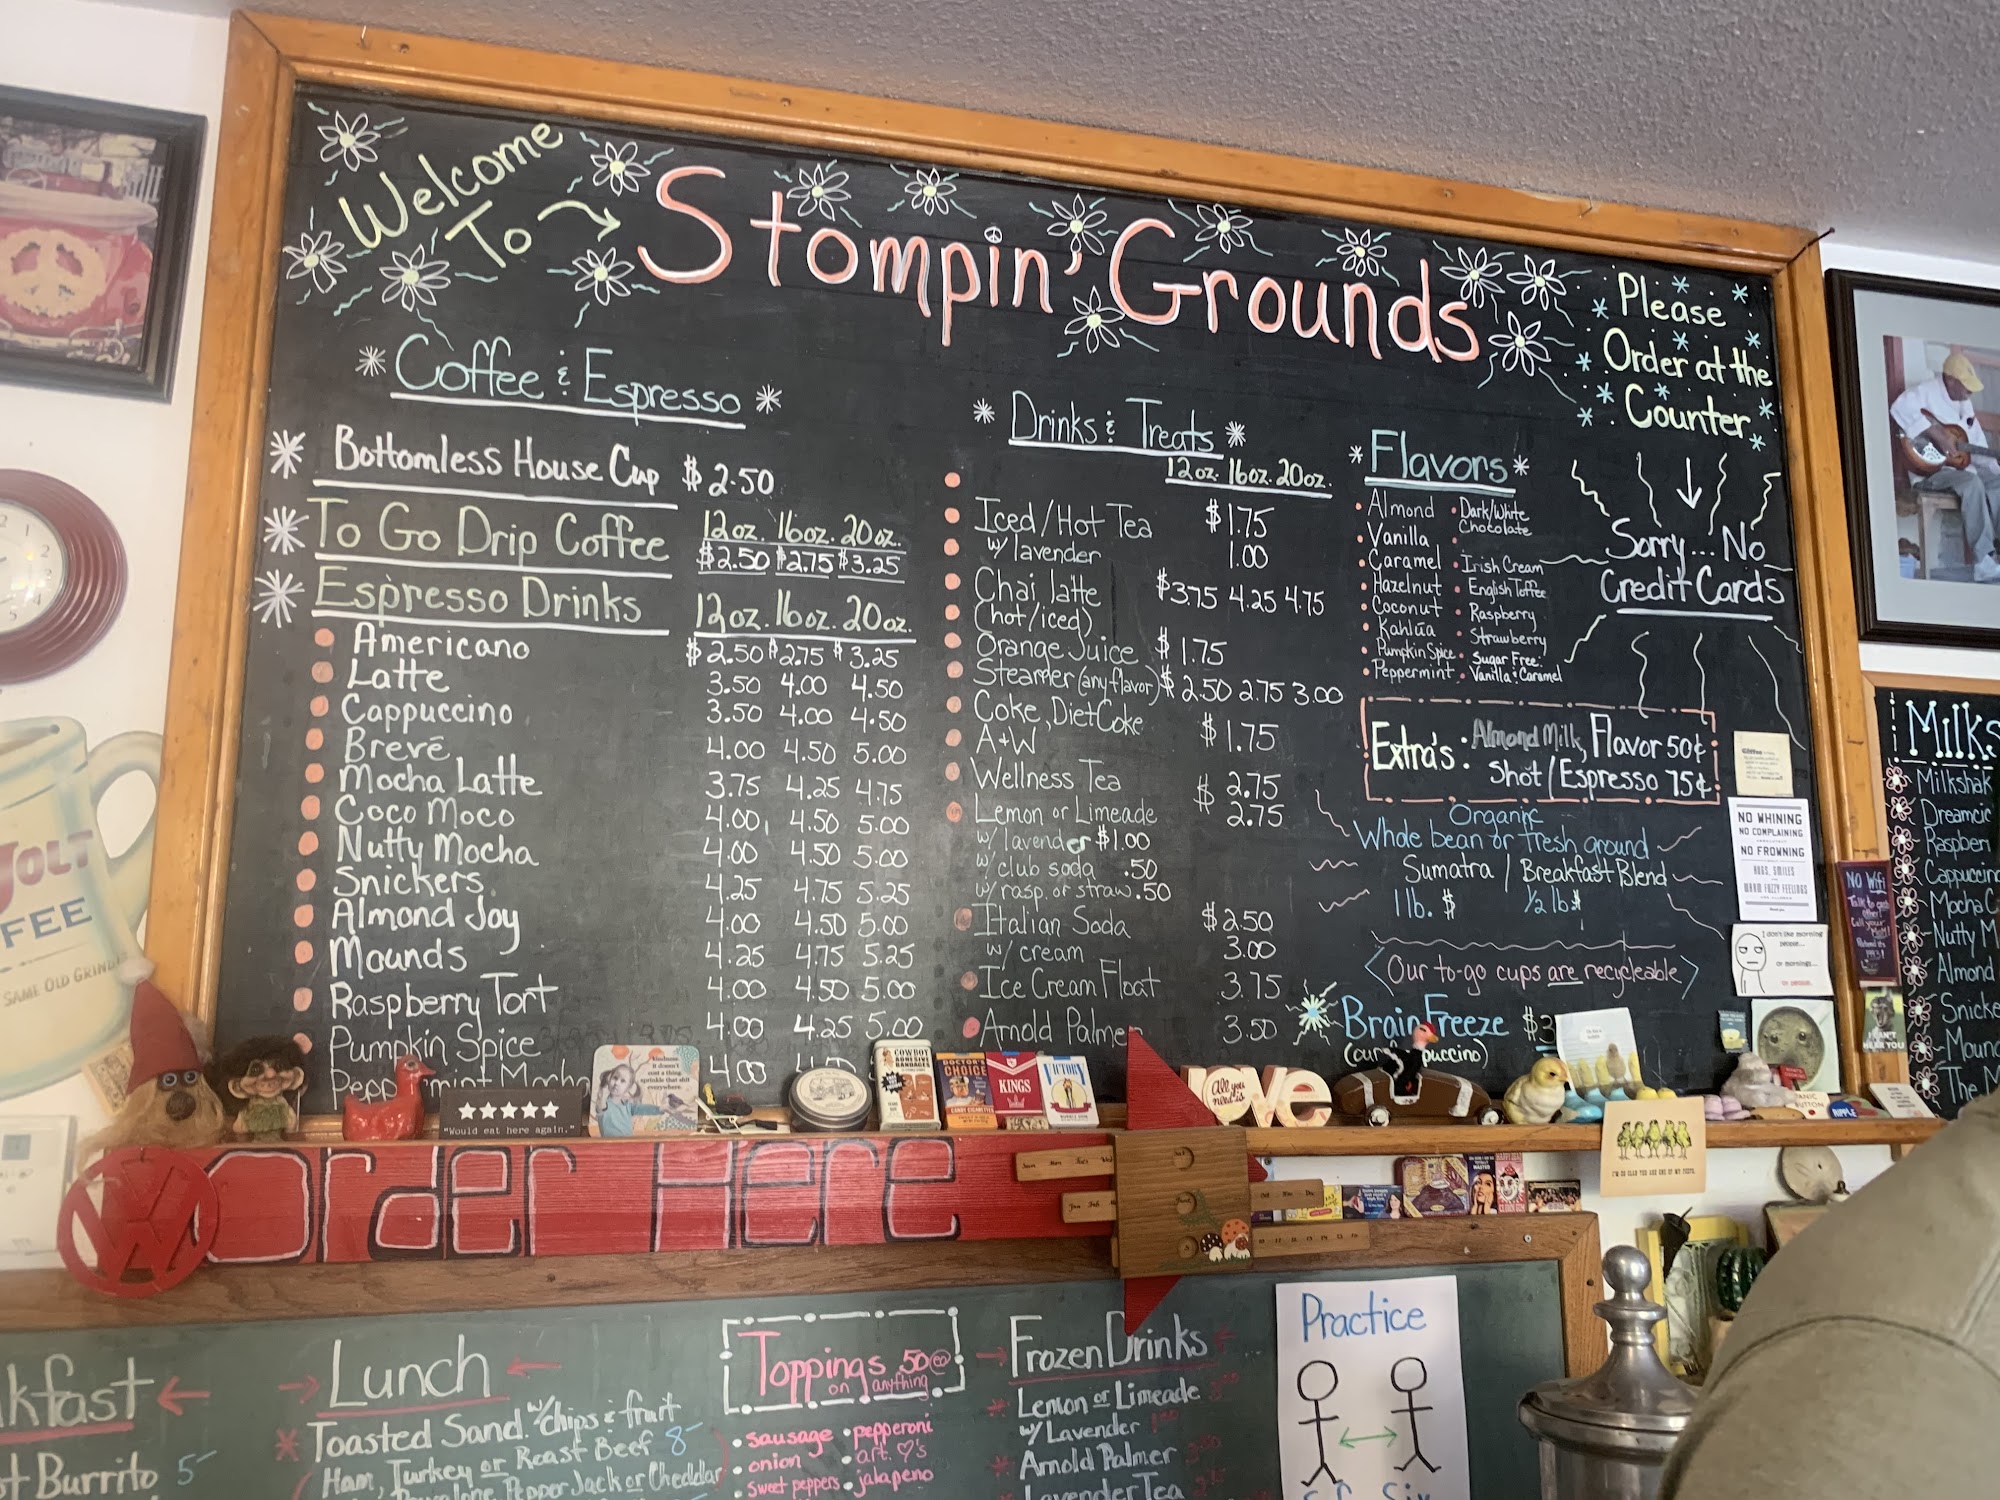 Welcome
To
Stompin' Grounds
Please
Order at the
Counter
Sorry... No
Credit Cards
Coffee & Espresso
Bottomless House Cup $2.50
To Go Drip Coffee 12oz. 16oz. 20oz.
$2.50 $2.75 $3.25
Espresso Drinks 12oz. 16oz. 20oz.
Americano $2.50 $2.75 $3.25
Latte 3.50 4.00 4.50
Cappuccino 3.50 4.00 4.50
Brevé 4.00 4.50 5.00
Mocha Latte 3.75 4.25 4.75
Coco Moco 4.00 4.50 5.00
Nutty Mocha 4.00 4.50 5.00
Snickers 4.25 4.75 5.25
Almond Joy 4.00 4.50 5.00
Mounds 4.25 4.75 5.25
Raspberry Tort 4.00 4.50 5.00
Pumpkin Spice 4.00 4.25 5.00
Peppermint Mocha 4.00
Drinks & Treats
12oz. 16oz. 20oz.
Iced/Hot Tea $1.75
w/ lavender 1.00
Chai latte $3.75 4.25 4.75
(hot/iced)
Orange Juice $1.75
Steamer (any flavor) $2.50 2.75 3.00
Coke, Diet Coke
A+W $1.75
Wellness Tea $2.75
Lemon or Limeade 2.75
w/ lavender $1.00
w/ club soda .50
w/ rasp. or straw .50
Italian Soda $2.50
w/ cream 3.00
Ice Cream Float 3.75
Arnold Palmer 3.50
Flavors
Almond
Vanilla
Caramel
Hazelnut
Coconut
Kahlúa
Pumpkin Spice
Peppermint
Dark/White
Chocolate
Irish Cream
English Toffee
Raspberry
Strawberry
Sugar Free:
Vanilla & Caramel
Extra's: Almond Milk, Flavor 50¢
Shot/Espresso 75¢
Organic
Whole bean or fresh ground
Sumatra / Breakfast Blend
1 lb. $ 1/2 lb $
Our to-go cups are recycleable
Brain Freeze $3
NO WHINING
NO COMPLAINING
NO FROWNING
HUGS, SMILES
WARM FUZZY FEELINGS
I don't like morning
people...
or mornings...
or people.
NO Wifi
Talk to each
other!
Milks
Milkshak
Dreamcic
Raspberr
Cappuccino
Mocha C
Nutty M
Almond
Snicke
Moun
The M
JOLT
FFEE
SAME OLD GRIND
"Would eat here again."
kindness
it doesn't
cost a thing.
sprinkle that shit
everywhere.
COWBOY
BANDAGES
DOCTOR'S
CHOICE
KINGS
VICTORY
All you
need is
love
Order Here
kfast
t Burrito 5-
Lunch
Toasted Sand. w/ chips & fruit
Ham, Turkey or Roast Beef 8-
Pepper Jack or Cheddar
Toppings .50 ea
on anything
sausage
onion
sweet peppers
pepperoni
art. ♡'s
jalapeno
Frozen Drinks
Lemon or Limeade
w/ Lavender
Arnold Palmer
Lavender Tea
Practice